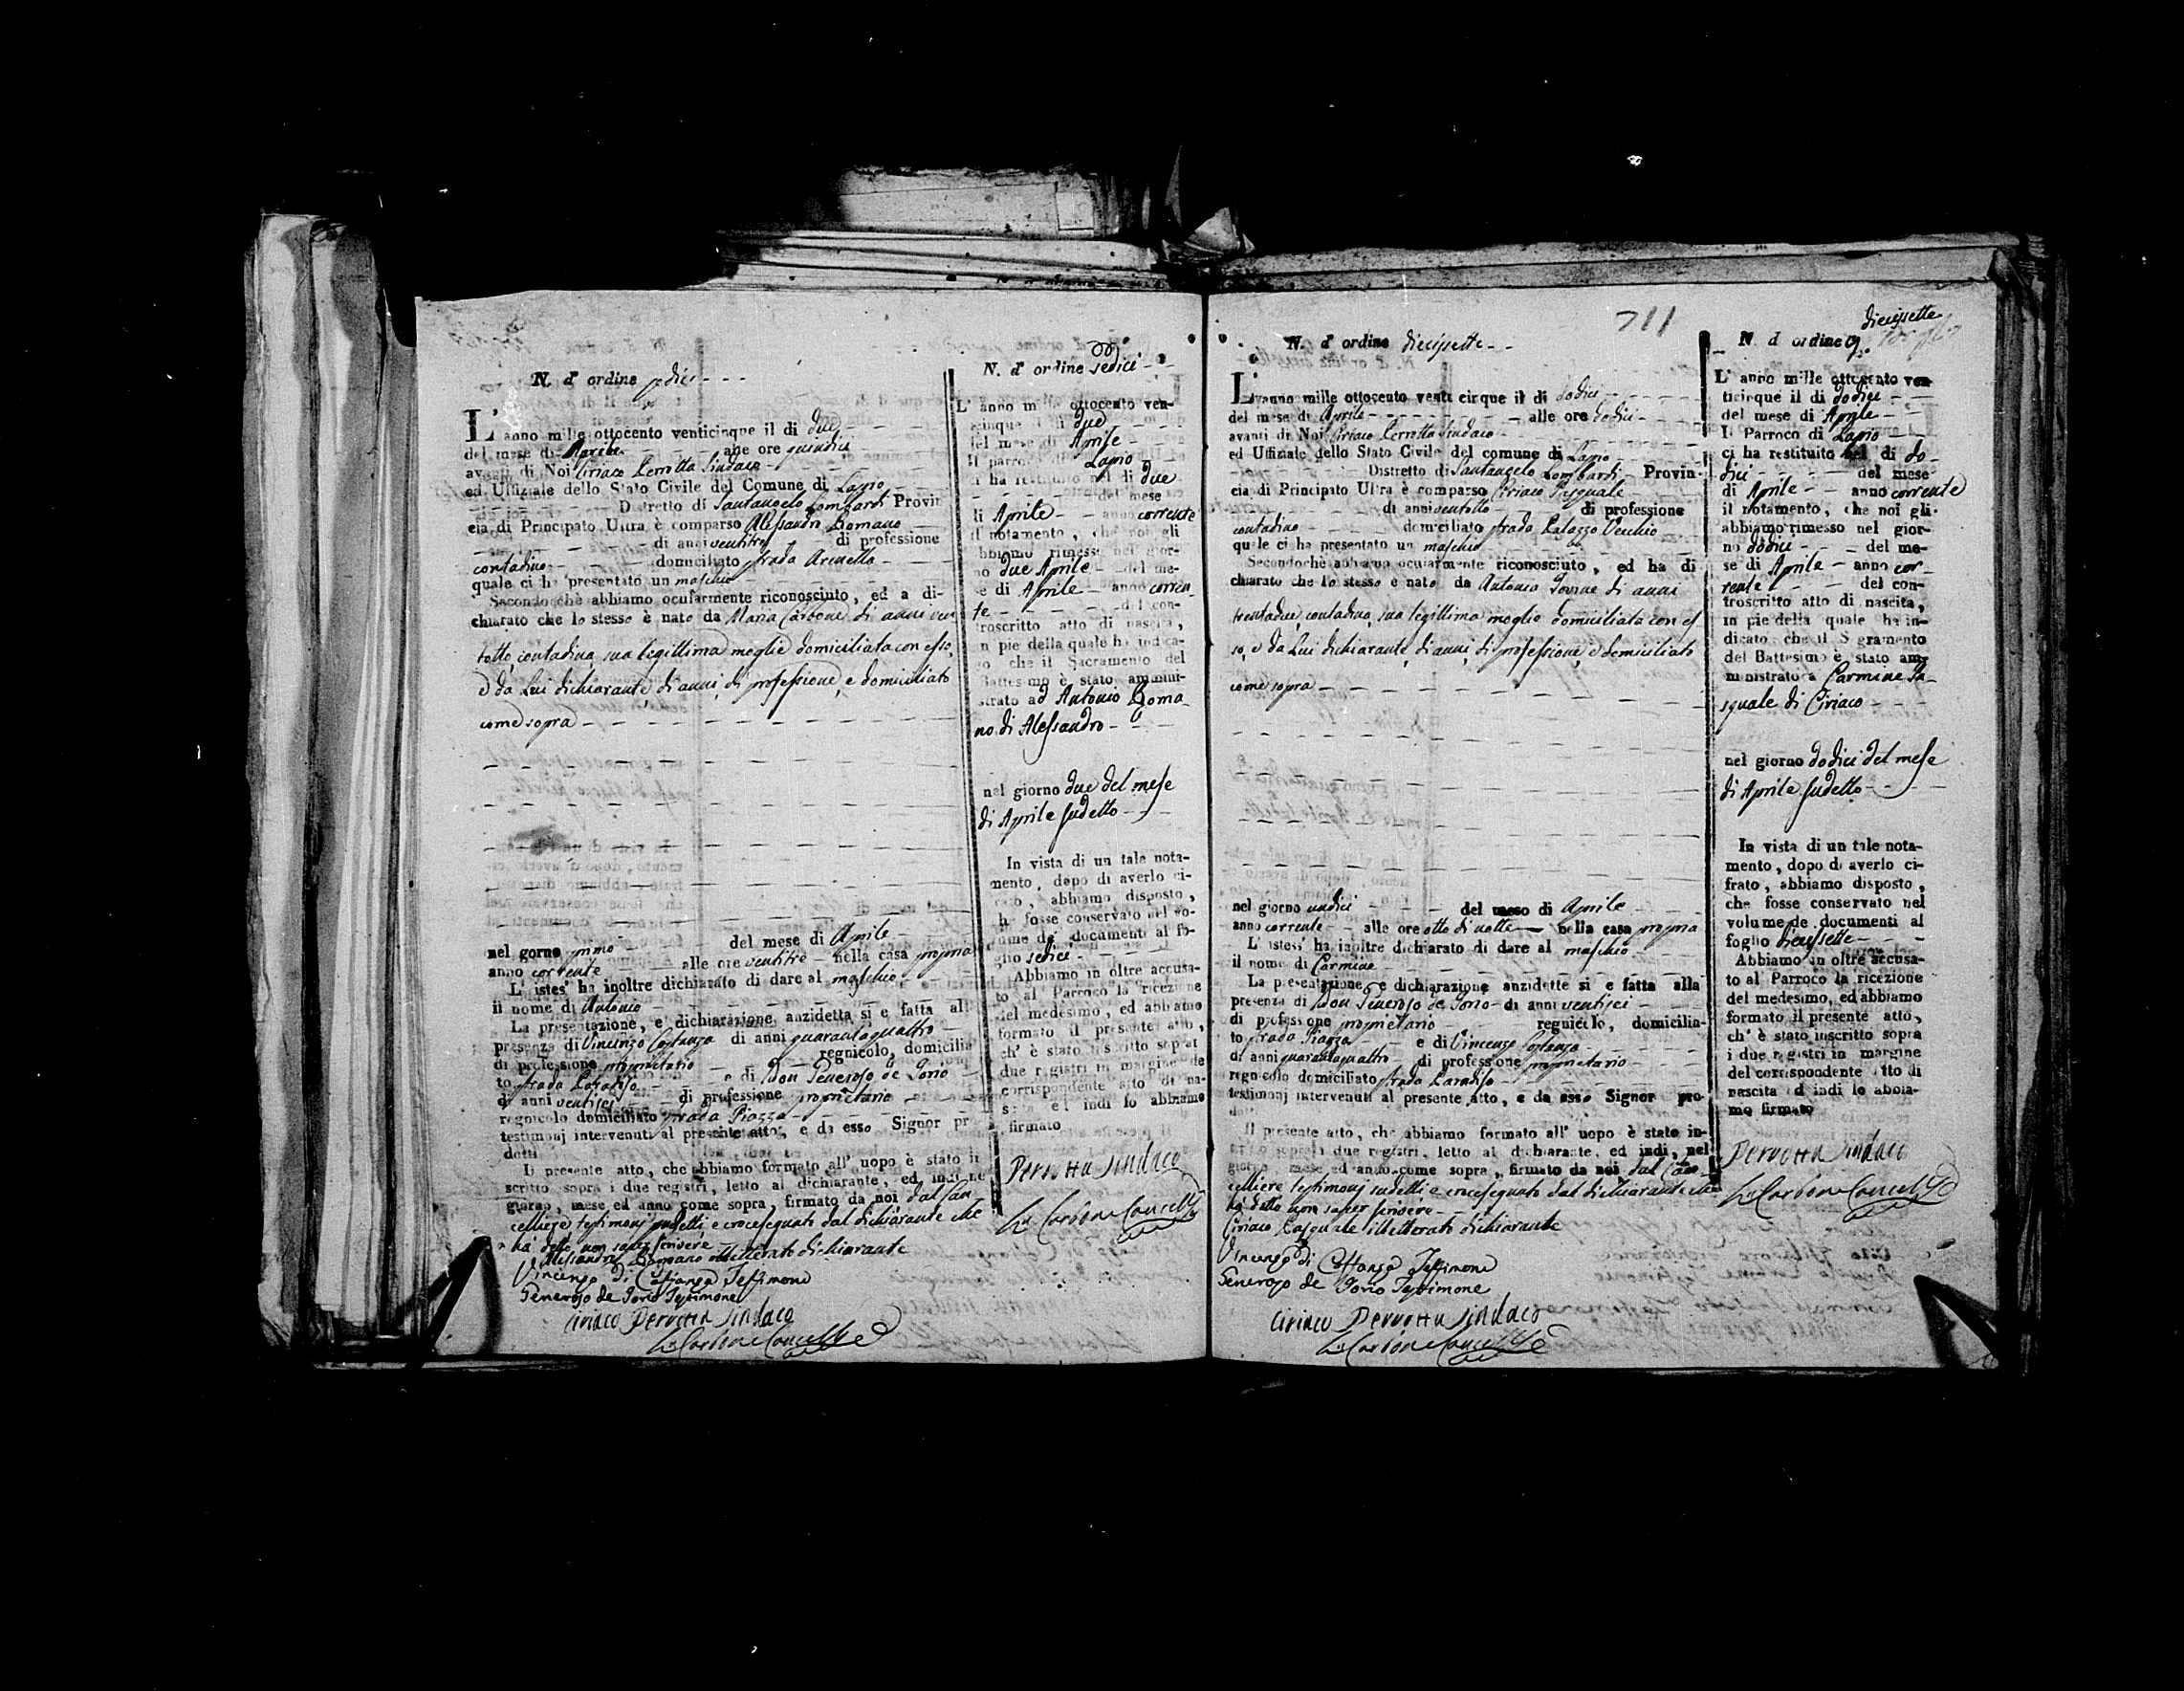 N. d' ordine sedici
L' anno mille ottocento venticinque il di due
del mese di Aprile alle ore quindici
avanti di Noi Ciriaco Perrotta Sindaco
ed Uffiziale dello Stato Civile del Comune di Lapio
Distretto di Santangelo Lombardi Provin
cia di Principato Ultra è comparso Alessandro Romano
di anni ventitre di professione
contadino domiciliato strada
quale ci ha presentato un maschio
Secondochè abbiamo ocularmente riconosciuto, ed a di-
chiarato che lo stesso è nato da Maria Carbone di anni ven
totto, contadina, sua legittima moglie domiciliata con esso,
e da Lui dichiarante, di anni, di professione, e domiciliato
come sopra
nel gorno primo del mese di Aprile
anno corrente alle ore ventitrè nella casa propria
L' istes' ha inoltre dichiarato di dare al maschio
il nome di Antonio
La presentazione, e dichiarazione anzidetta si è fatta all
presenza di Vincenzo Costanza di anni quarantaquattro
di professione proprietario regnicolo, domicilia
to strada e di Don Generoso de Iorio
di anni ventisei di professione proprietario
regnicolo domiciliato strada Piazza
testimonj intervenuti al presente atto, e da esso Signor pr
dotti
Il presente atto, che abbiamo formato all' uopo è stato in
scritto sopra i due registri, letto al dichiarante, ed, indi ne
giorno, mese ed anno come sopra, firmato da noi dal Can
celliere, testimonj sudetti, e crocesegnato dal dichiarante che
ha detto non saper scrivere
Alessandro Romano illetterato dichiarante
Vincenzo di Costanza Testimone
Generoso de Iorio Testimone
Ciriaco Perrotta Sindaco
Carbone Cancelliere
N. d' ordine sedici
L' anno mille ottocento ven-
cinque il di due
del mese di Aprile
Il parroco Lapio
ci ha restituito nel di due
del mese
di Aprile anno corrente
il notamento, che noi gli
abbiamo rimesso nel gior-
no due Aprile del me-
se di Aprile anno corren-
te del con-
troscritto atto di nascita,
in pie della quale ha indica-
to che il Sacramento del
Battesimo è stato ammini-
strato ad Antonio Roma
no di Alessandro
nel giorno due del mese
di Aprile sudetto
In vista di un tale nota-
mento, dopo di averlo ci-
frato, abbiamo disposto,
che fosse conservato nel vo-
lume de' documenti al fo-
glio sedici
Abbiamo in oltre accusa-
to al Parroco la ricezione
del medesimo, ed abbiamo
formato il presente atto,
ch' è stato iscritto sopra i
due registri in margine de
corrispondente atto di na-
scita ed indi lo abbiamo
firmato
Perrotta Sindaco
Carbone Cancelliere
711
N. d' ordine diecisette
L' anno mille ottocento venti cinque il di dodici
del mese di Aprile alle ore dodici
avanti di Noi Ciriaco Perrotta Sindaco
ed Uffiziale dello Stato Civile del comune di Lapio
Distretto di Santangelo Lombardi Provin-
cia di Principato Ultra è comparso Ciriaco Pasquale
di anni ventotto di professione
contadino domiciliato strada Palazzo Vecchio
quale ci ha presentato un maschio
Secondochè abbiamo ocularmente riconosciuto, ed ha di
chiarato che lo stesso è nato da Antonia Iovine di anni
trentadue, contadina, sua legittima moglie domiciliata con es
so, e da Lui dichiarante, di anni, di professione, e domiciliato
come sopra
nel giorno undici del mese di Aprile
anno corrente alle ore otto di notte nella casa propria
L' istess' ha inoltre dichiarato di dare al maschio
il nome di Carmine
La presentazione, e dichiarazione anzidette si è fatta alla
presenza di Don Generoso de Iorio di anni ventisei
di professione proprietario regnicolo, domicilia-
to strada Piazza e di Vincenzo Costanza
di anni quarantaquattro di professione proprietario
regnicolo domiciliato strada
testimonj intervenuti al presente atto, e da esso Signor pro-
dotti
Il presente atto, che abbiamo formato all' uopo è stato in-
scritto sopra i due registri, letto al dichiarante, ed indi, nel
giorno, mese, ed anno come sopra, firmato da noi dal Can-
celliere testimonj sudetti e crocesegnato dal dichiarante che
ha detto non saper scrivere
Ciriaco Pasquale illetterato dichiarante
Vincenzo di Costanza Testimone
Generoso de Iorio Testimone
Ciriaco Perrotta Sindaco
Carbone Cancelliere
diecisette
N. d' ordine
L' anno mille ottocento ven
ticinque il di dodici
del mese di Aprile
Il Parroco di Lapio
ci ha restituito nel di do-
dici del mese
di Aprile anno corrente
il notamento, che noi gli
abbiamo rimesso nel gior-
no dodici del me-
se di Aprile anno cor-
rente del con-
troscritto atto di nascita,
in pie della quale ha in-
dicato che il Sagramento
del Battesimo è stato am-
ministrato a Carmine Pa-
squale di Ciriaco
nel giorno dodici del mese
di Aprile sudetto
In vista di un tale nota-
mento, dopo di averlo ci-
frato, abbiamo disposto,
che fosse conservato nel
volume de documenti al
foglio diecisette
Abbiamo in oltre accusa-
to al Parroco la ricezione
del medesimo, ed abbiamo
formato il presente atto,
ch' è stato inscritto sopra
i due registri in margine
del corrispondente atto di
nascita ed indi lo abbia-
mo firmato
Perrotta Sindaco
Carbone Cancelliere